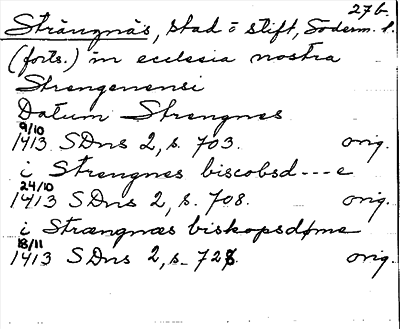 27b.
Strängnäs, stad o stift, Söderm. l.
(forts.) in ecclesia nostra
Strengenensi
Datum Strengnes
9/10
1413 SDns 2, s. 703. orig.
i Strengnes biscobsd---e
24/10
1413 SDns 2, s. 708. orig.
i Strængnæs biskopsdøme
18/11
1413 SDns 2, s. 728. orig.